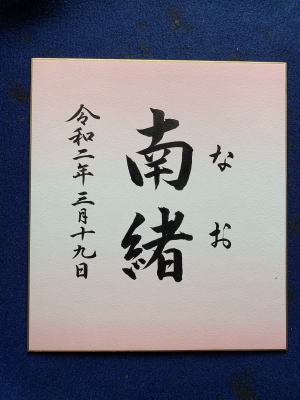 なお
南緒
令和二年三月十九日